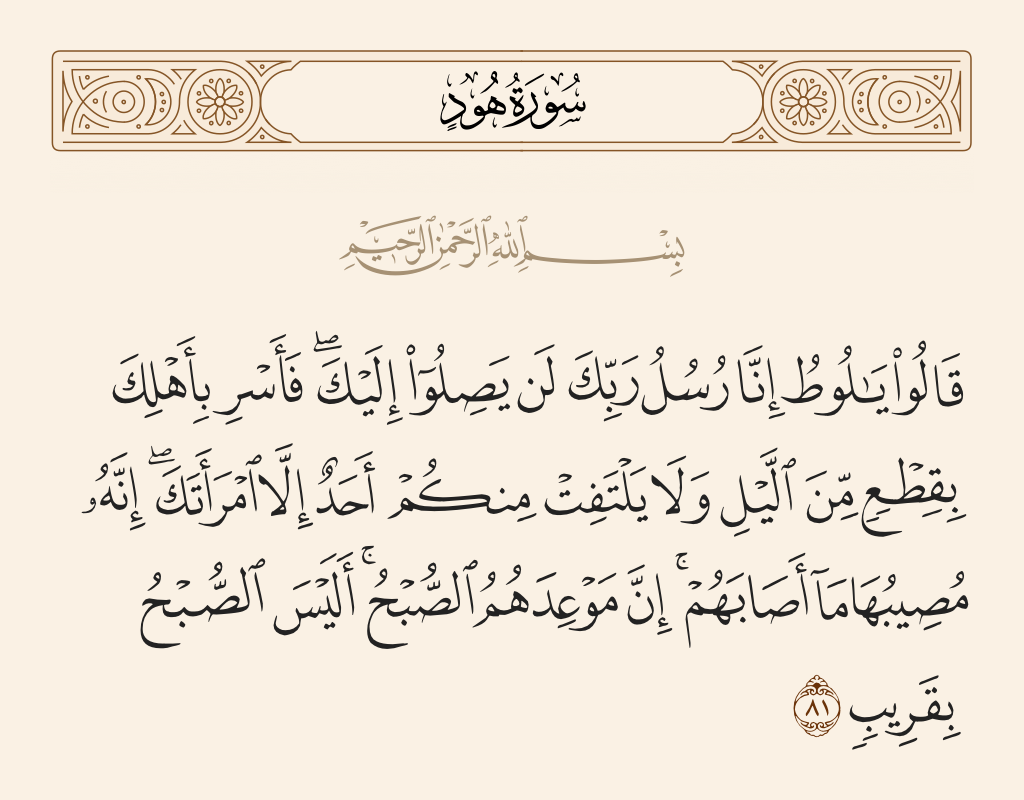 سُورَةُ هُودٍ
بِسْمِ ٱللَّهِ ٱلرَّحْمَٰنِ ٱلرَّحِيمِ
قَالُوا۟ يَـٰلُوطُ إِنَّا رُسُلُ رَبِّكَ لَن يَصِلُوٓا۟ إِلَيْكَ ۖ فَأَسْرِ بِأَهْلِكَ
بِقِطْعٍ مِّنَ ٱلَّيْلِ وَلَا يَلْتَفِتْ مِنكُمْ أَحَدٌ إِلَّا ٱمْرَأَتَكَ ۖ إِنَّهُۥ
مُصِيبُهَا مَآ أَصَابَهُمْ ۚ إِنَّ مَوْعِدَهُمُ ٱلصُّبْحُ ۚ أَلَيْسَ ٱلصُّبْحُ
بِقَرِيبٍ ٨١